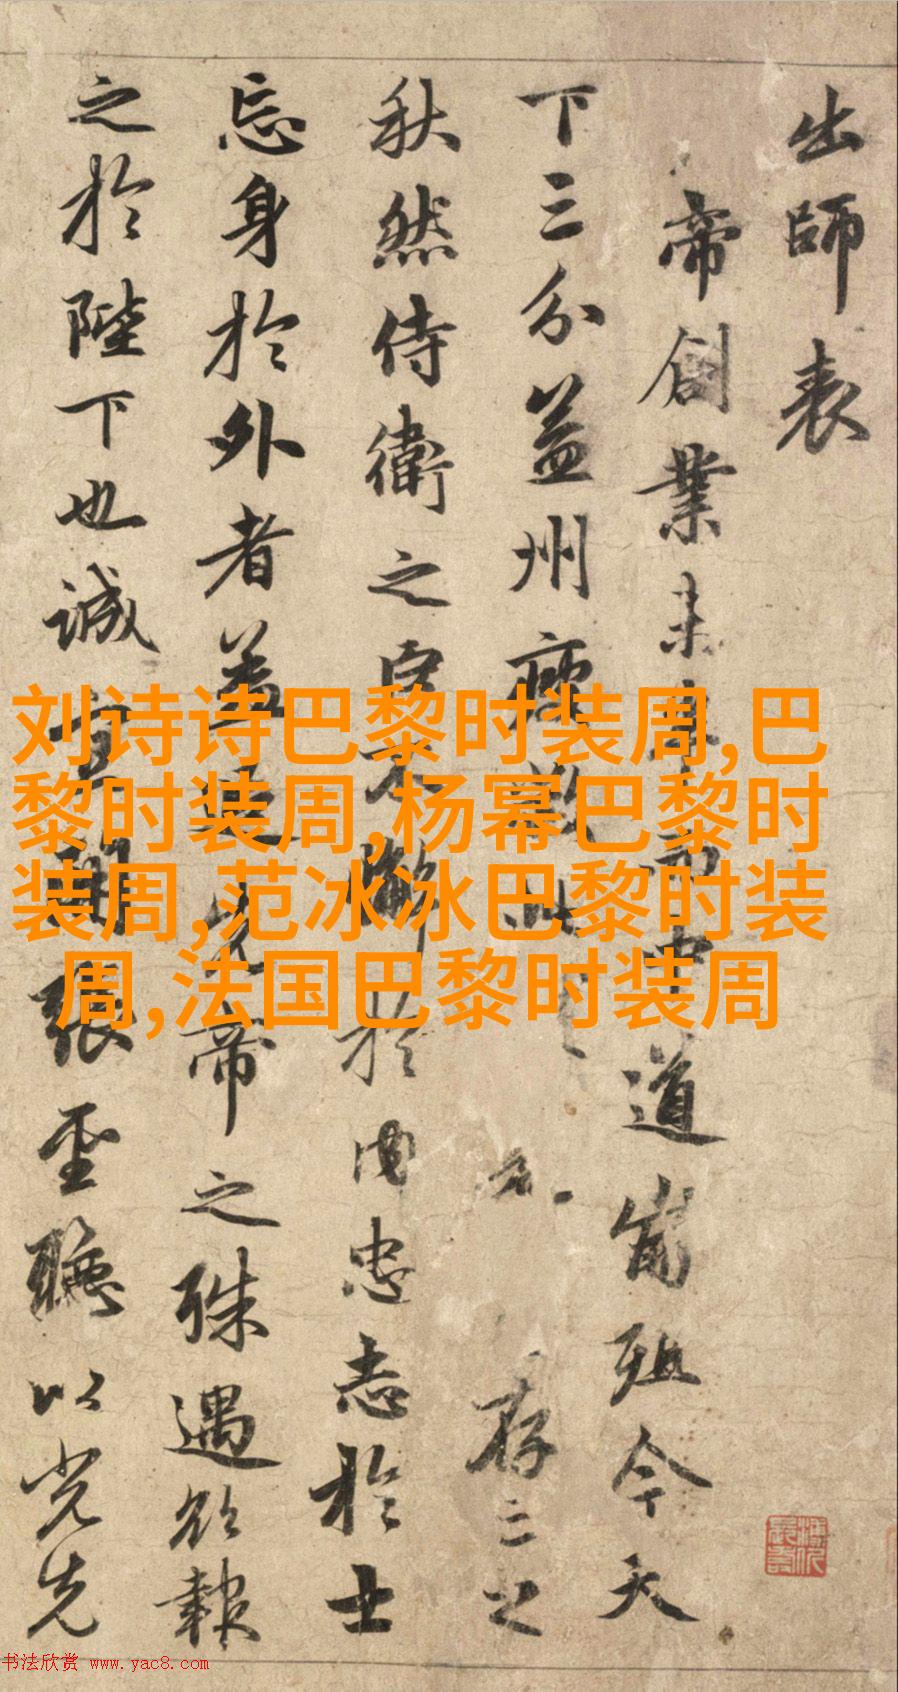 出師表
帝創業未半而中道崩殂今天
下三分益州疲敝此存亡之
秋然侍衛之臣不懈於内忠志於士
忘身於外者蓋追先帝之殊遇欲報
之於陛下也誠宜開張聖聽以光先
刘诗诗巴黎时装周,巴
黎时装周,杨幂巴黎时
装周,范冰冰巴黎时装
周,法国巴黎时装周
书法欣赏 www.yac8.com